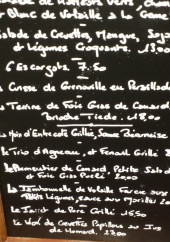 Blanc de Volaille à la Crème
Salade de Crevettes, Mangue, Soja
et Légumes Croquants. 13,00
6 Escargots. 7.50
Cuisse de Grenouille en Persillade
Terrine de Foie Gras de Canard,
Brioche Tiède. 18,00
Noix d'Entrecôte Grillée, Sauce Béarnaise
Le Trio d'Agneau, et Fenouil Grillé
Le Parmentier de Canard, Petite Salade
et Foie Gras Poêlé
La Jambonnette de Volaille Farcie aux
Petits Légumes, sauce aux Morilles
Le Jarret de Porc Grillé 15.50
Le Vol au Vent Papillons au Jus
de Homard.